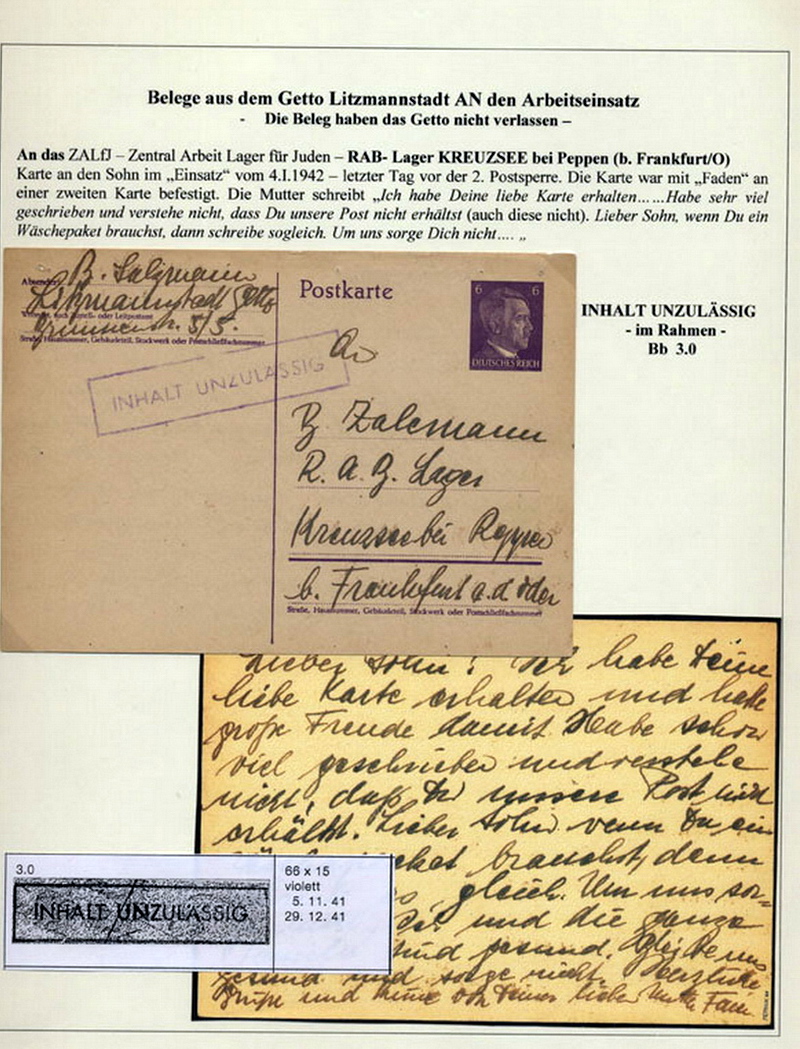 Belege aus dem Getto Litzmannstadt AN den Arbeitseinsatz
- Die Beleg haben das Getto nicht verlassen –
An das ZALfJ – Zentral Arbeit Lager für Juden – RAB- Lager KREUZSEE bei Peppen (b. Frankfurt/O)
Karte an den Sohn im „Einsatz“ vom 4.I.1942 – letzter Tag vor der 2. Postsperre. Die Karte war mit „Faden“ an
einer zweiten Karte befestigt. Die Mutter schreibt „Ich habe Deine liebe Karte erhalten……Habe sehr viel
geschrieben und verstehe nicht, dass Du unsere Post nicht erhältst (auch diese nicht). Lieber Sohn, wenn Du ein
Wäschepaket brauchst, dann schreibe sogleich. Um uns sorge Dich nicht…. „
B. Salzmann
Litzmannstadt Getto
5/5.
Straße, Hausnummer, Gebäudeteil, Stockwerk oder Postschließfachnummer
Postkarte
6 6
DEUTSCHES REICH
INHALT UNZULÄSSIG
An
INHALT UNZULÄSSIG
- im Rahmen -
Bb 3.0
Zalcmann
R. A. B. Lager
Kreuzsee bei Reppen
b. Frankfurt a. d Oder
Straße, Hausnummer, Gebäudeteil, Stockwerk oder Postschließfachnummer
Lieber Sohn! Ich habe Deine
liebe Karte erhalten und hatte
große Freude damit. Habe schon
viel geschrieben und verstehe
nicht, daß Du unsere Post nicht
erhälst. Lieber Sohn wenn Du ein
brauchst, dann
gleich. Um uns sor-
und die ganze
sind gesund.
gesund und sorge nicht. Herzliche
Grüße und von Deiner lieben
3.0
INHALT UNZULÄSSIG
66 x 15
violett
5. 11. 41
29. 12. 41